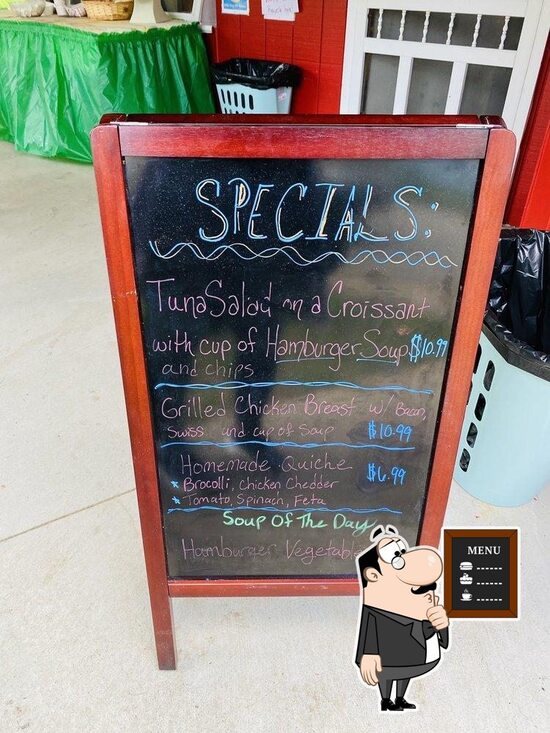 SPECIALS:
Tuna Salad on a Croissant
with cup of Hamburger Soup $10.99
and chips
Grilled Chicken Breast w/ Bacon,
Swiss and cup of Soup $10.99
Homemade Quiche $6.99
* Brocolli, Chicken Chedder
* Tomato, Spinach, Feta
Soup Of The Day
Hamburger Vegetable
MENU